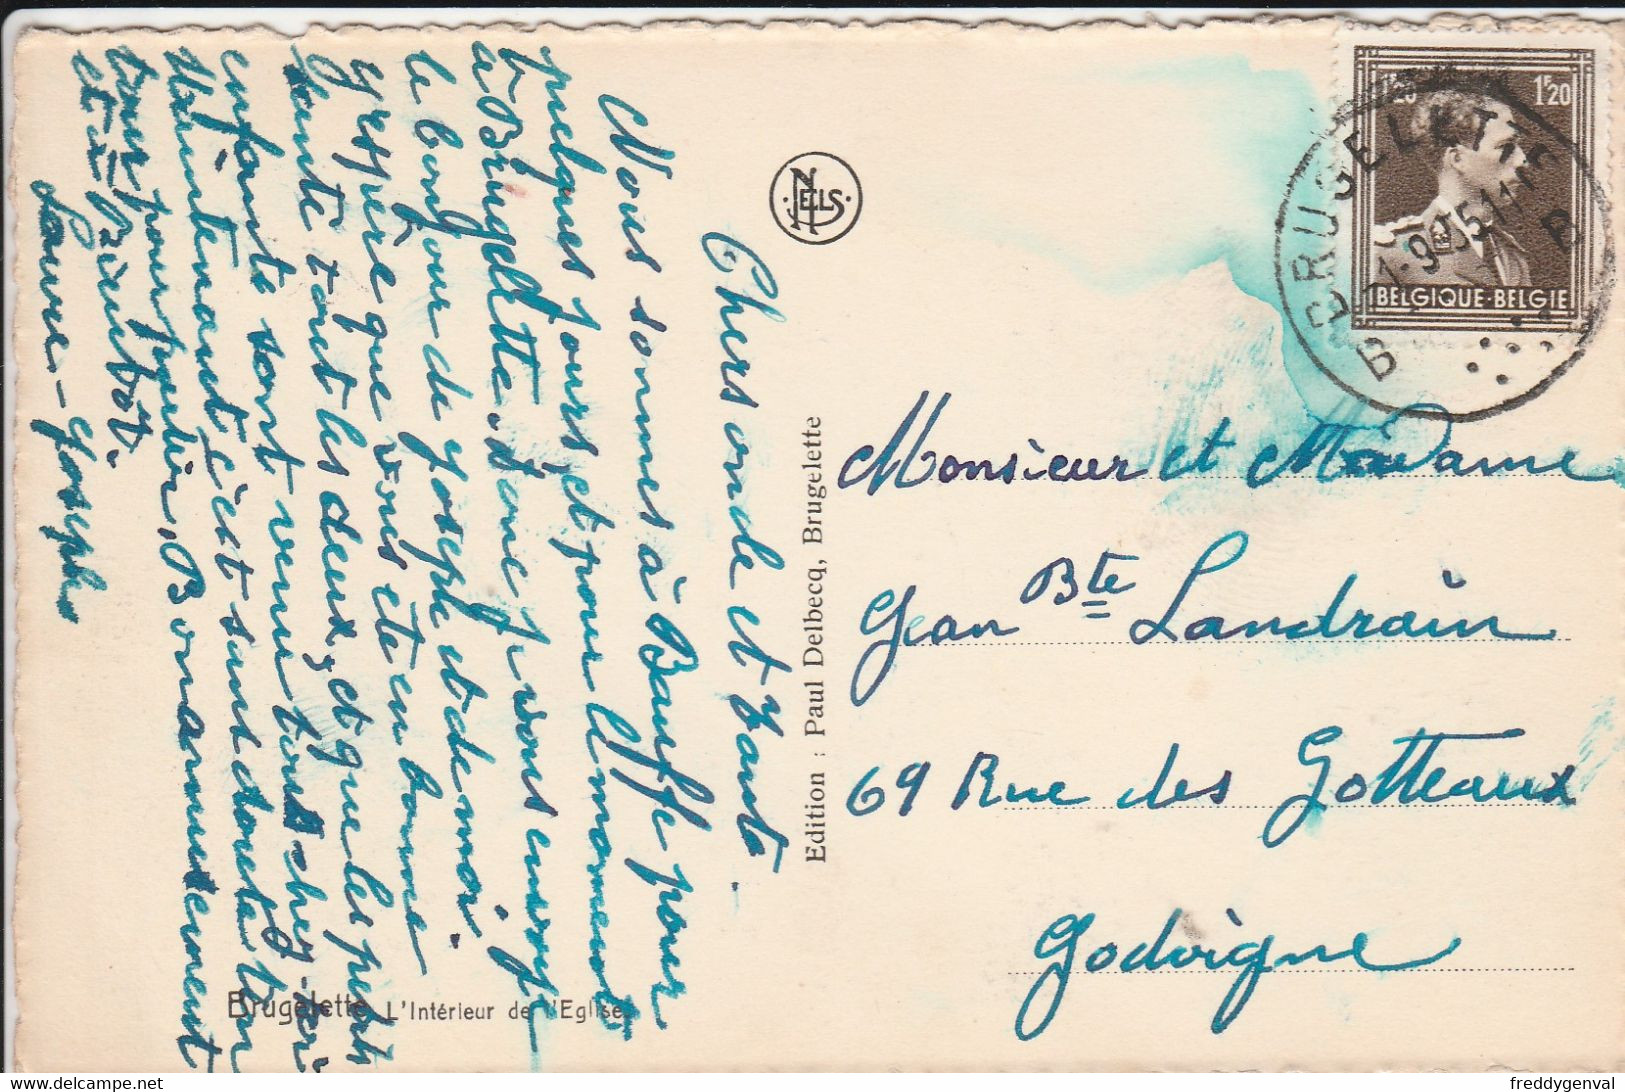 Chers oncle et Zante.
Nous sommes à Bauffe pour
quelques jours, et pour l'moment
à Brugelette. Dane j vous envoye
le bonjour de Joseph et de moi.
J'espère que vous ête en bonne
Sante tout les deux, et que les petits
enfants sont venu tous chez
Maintenant c'est sant doute ton
tour pour partir, Bon amusement
et à Bientot.
Louise-Joseph
NELS
Edition : Paul Delbecq, Brugelette
Brugelette L'Intérieur de l'Eglise.
1F20 1F20
BELGIQUE-BELGIE
BRUGELETTE
B B
Monsieur et Madame
Jean Bte Landrain
69 Rue des Gotteaux
Godvigne
www.delcampe.net
freddygenval